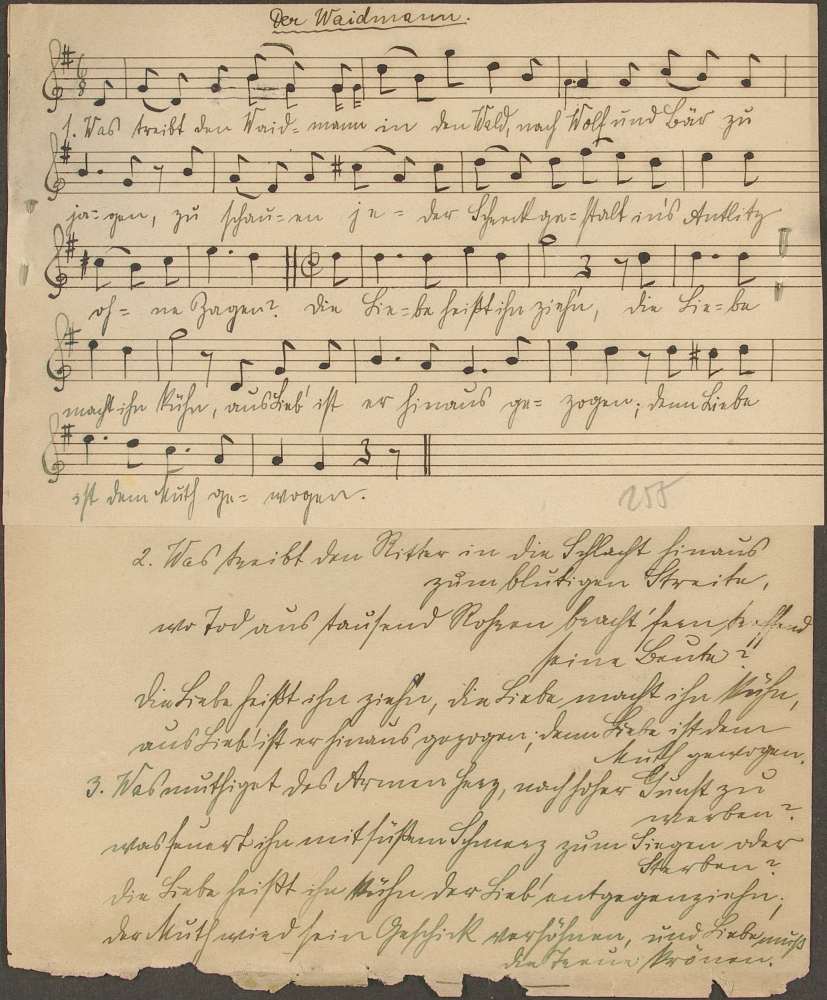 Der Waidmann.
1. Was treibt den Waid- mann in den Wald, nach Wolf und Bär zu
ja- gen, zu schau- en je- der Schreckge- stalt in's Antlitz
oh- ne Zagen? Die Lie- be heißt ihn ziehn, die Lie- be
macht ihn kühn, aus Lieb' ist er hinaus ge- zogen; denn Liebe
ist dem Muth ge- wogen.
255
2. Was treibt den Ritter in die Schlacht hinaus
zum blutigen Streite,
wo Tod aus tausend Rohren kracht fern treffend
seine Beute?"
Die Liebe heißt ihn ziehn, die Liebe macht ihn kühn,
aus Lieb' ist er hinaus gezogen; denn Liebe ist dem
Muth gewogen.
3. Was muthiget des Armen Herz, nach hoher Gunst zu
werben?
was feuert ihn mit süßem Schmerz zum Siegen oder
Sterben?
Die Liebe heißt ihn kühn der Lieb' entgegenziehn;
der Muth wird sein Geschick versöhnen, und Liebe muß
die Treue krönen.